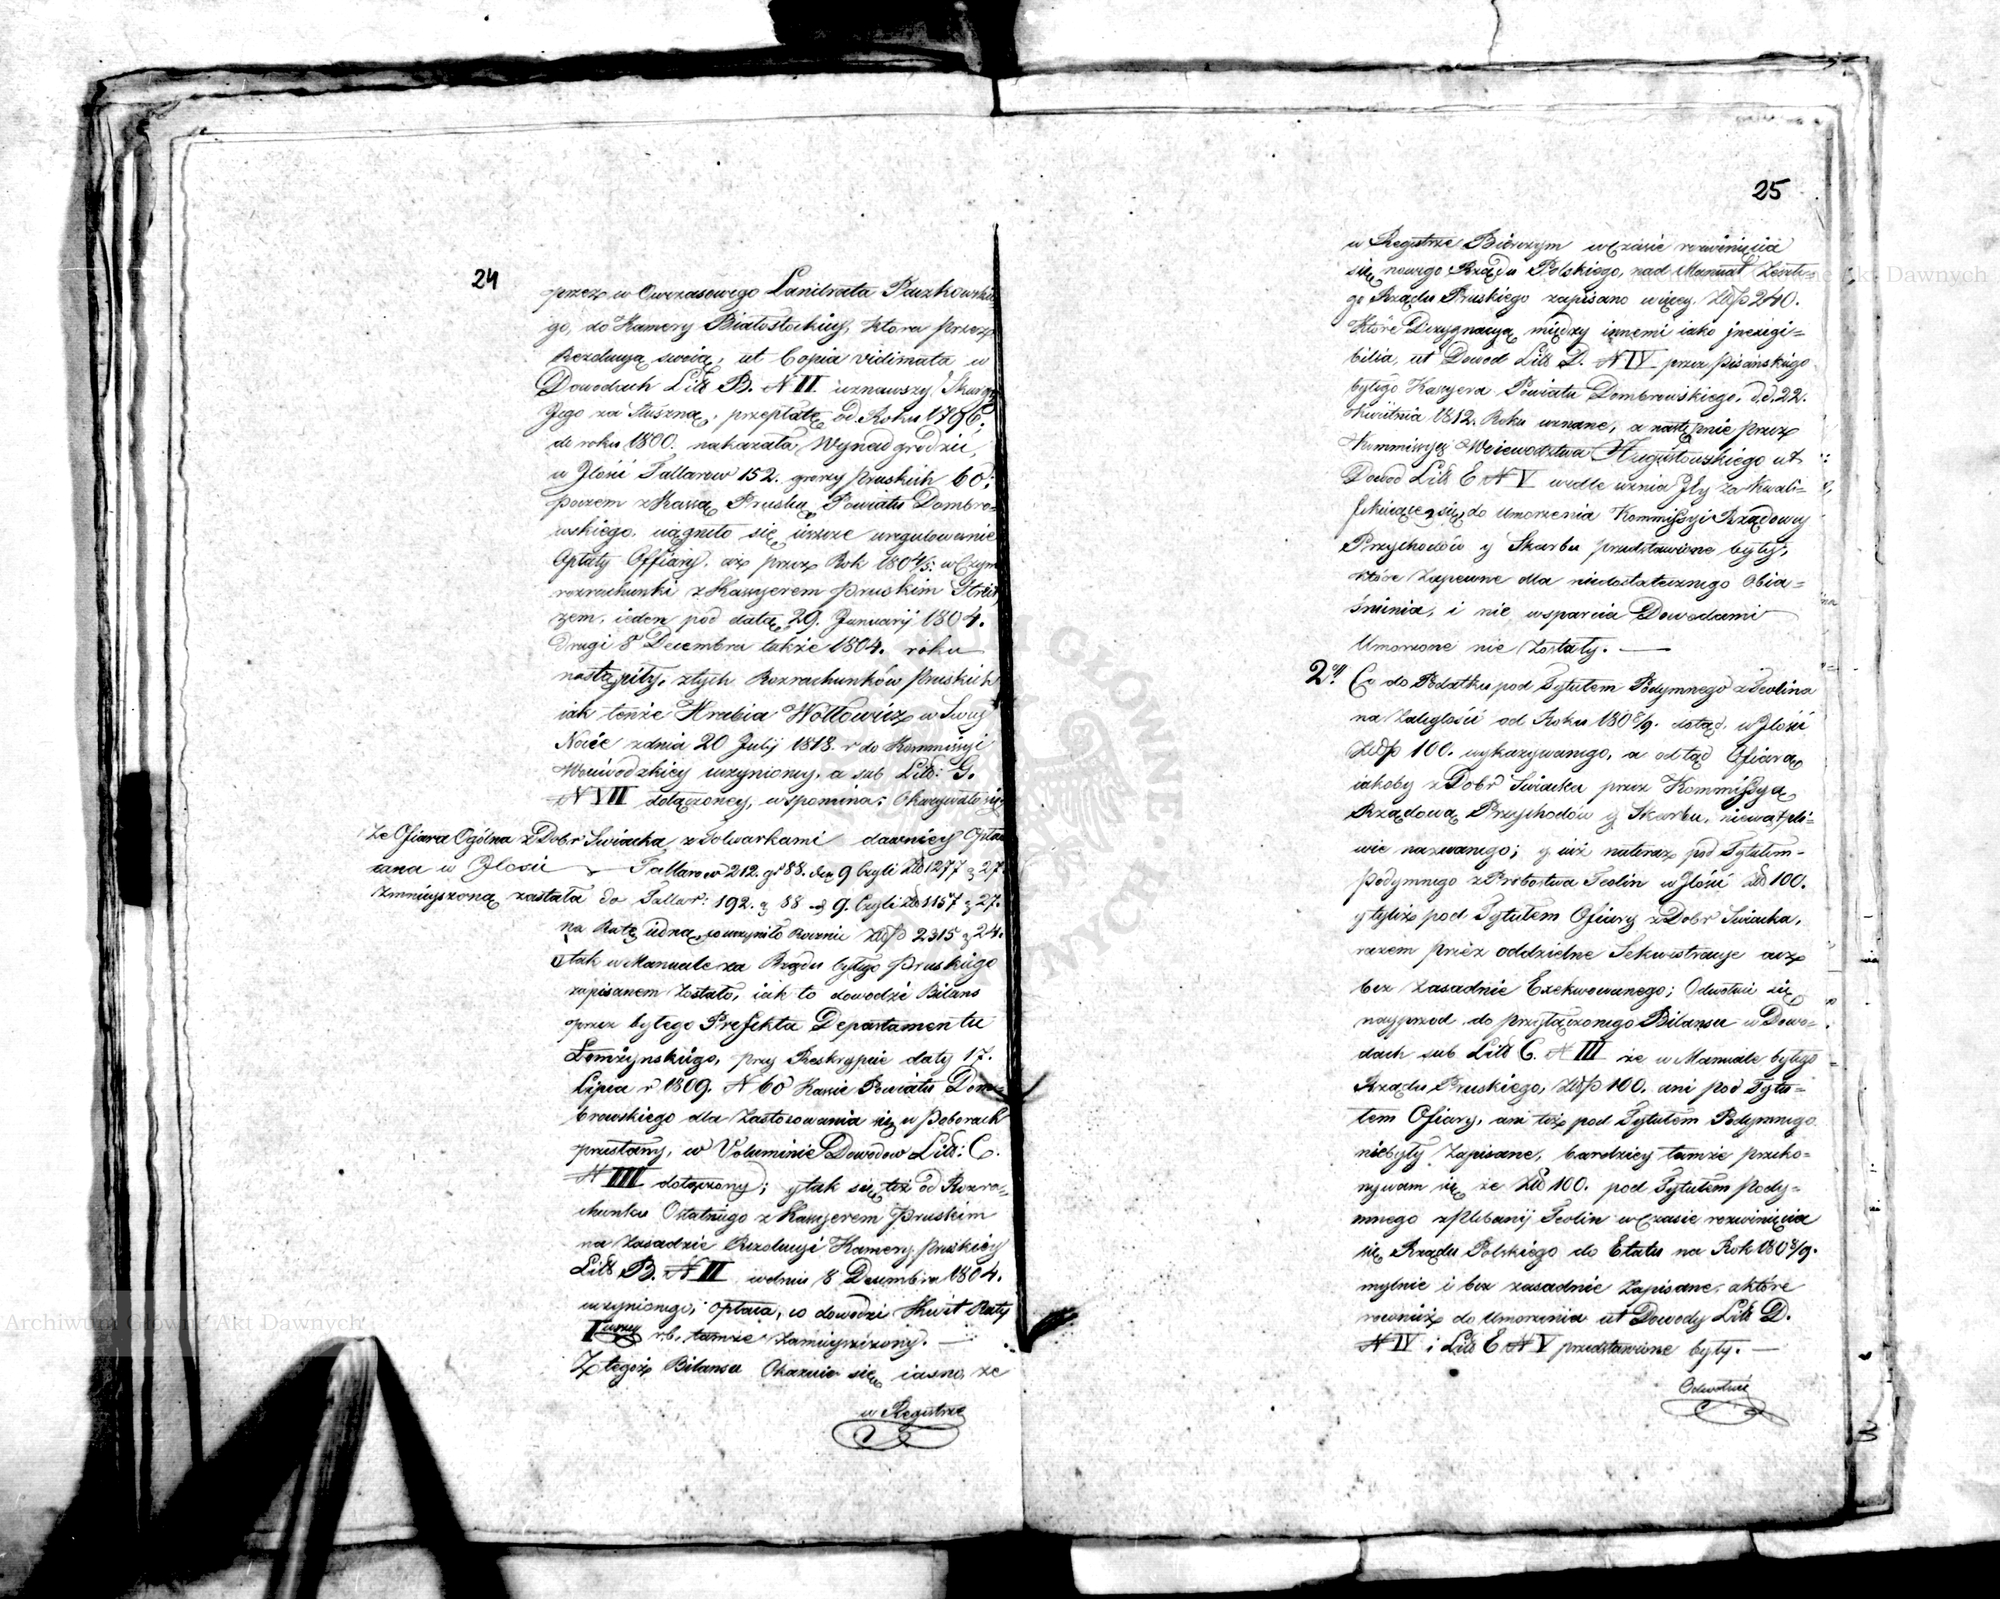 24
przez w Owczasowego Landrata Paczkowskie
go, do Kamery Białostockiey, która przez
Rezolucyą swoią, ut Copia vidimata w
Dowodach Litt B. N II uznawszy Skargę
Jego za słuszną, przepłatę od Roku 1796,
do roku 1800. nakazała Wynadgrodzić,
w Jlości Tallarow 152. groszy Pruskich 60.
poczem z Kassą Pruską Powiatu Dombro-
wskiego, ciągneło się ieszcze uregulowanie
Opłaty Offiary, aż przez Rok 1804/5. w Czym
rozrachunki z Kassyerem Pruskim
zem, ieden pod datą 29. Januarij 1804.
Drugi 8 Decembra także 1804. roku
nastąpiły, z tych Rozrachunków Pruskich
iak tenże Hrabia Wołłowicz w Swey
Nocie z dnia 20 Julij 1818. r do Kommissyi
Woiewodzkiey uczynioney, a sub Litt: G.
N VII dołączoney, wspomina; Okazywało się
że Ofiara Ogólna z Dóbr Swiacka z Folwarkami dawniey Opła
cana w Jlości Tallarow 212. gr 88. den 9 Czyli Złł 1277 g 27.
zmnieyszoną została do Tallar: 192. g 88 d 9. Czyli Złł 1157 g 27.
na Ratę iedną, co uczyniło Rocznie Złłp 2315 g 24.
y tak w Manuale za Rządu byłego Pruskiego
zapisanem zostało, iak to dowodzi Bilans
przez byłego Prefekta Departamentu
Łomżynskiego, przy Reskrypcie daty 17.
Lipca r 1809. N 60 Kassie Powiatu Dom-
browskiego dla zastosowania się w poborach
przesłany, w Voluminie Dowodow Litt: C.
N III dołączony; y tak się też od Rozra-
chunku Ostatniego z Kassyerem Pruskim
na zasadzie Rezolucyi Kamery Pruskiey
Litt B. N II w dniu 8 Decembra 1804.
uczynionego, opłaca, co dowodzi Kwit Raty
I r.b. tamże zamieszczony. —
Z tegoż Bilansu Okazuie się iasno, że
w Registrze
25
w Registrze Biorczym w czasie rozwinięcia
się nowego Rządu Polskiego, nad Manuał Zeszłe-
go Rządu Pruskiego zapisano więcey Złłp 240.
Które Dezygnacyą między innemi iako jnexigi-
bilia, ut Dowod Litt D. N IV przez Pisańskiego
byłego Kassyera Powiatu Dombrowskiego, d.d. 22.
Kwietnia 1812. Roku uznane, a następnie przez
Kommissyą Woiewodztwa Augustowskiego ut
Dowod Litt E N V wedle uznia Jey za kwali-
fikuiące się do Umorzenia Kommissyi Rządowey
Przychodów y Skarbu przedstawione były,
które zapewne dla niedostatecznego Obia-
śnienia, i nie wsparcia Dowodami
Umorzone nie zostały. —
2. Co do Podatku pod Tytułem Podymnego z Teolina
na zaległość od Roku 1808/9. dotąd, w Jlości
Złłp 100. wykazywanego, a odtąd Ofiarą
iakoby z Dobr Swiacka przez Kommissyą
Rządową Przychodów y Skarbu, niewątpli-
wie nazwanego; y iuż nateraz pod Tytułem
Podymnego z Probostwa Teolin w Jlości Złł 100.
y tyleż pod Tytułem Ofiary z Dobr Swiacka,
razem przez oddzielne Sekwestracye aż
bez zasadnie Exekwowanego; Odwołuie się
nayprzod do przyłączonego Bilansu w Dowo-
dach sub Litt C. N III że w Manuale byłego
Rządu Pruskiego, Złłp 100. ani pod Tytu-
łem Ofiary, ani też pod Tytułem Podymnego
niebyły zapisane, bardziey tamże przeko-
nywam się że Złł 100. pod Tytułem Pody-
mnego z Plebanij Teolin w Czasie rozwinięcia
się Rządu Polskiego do Etatu na Rok 1808/9.
mylnie i bez zasadnie zapisane, a które
rownież do Umorzenia ut Dowody Litt D.
N IV i Litt E N V przedstawione były. —
Odwołuie
Archiwum Główne Akt Dawnych